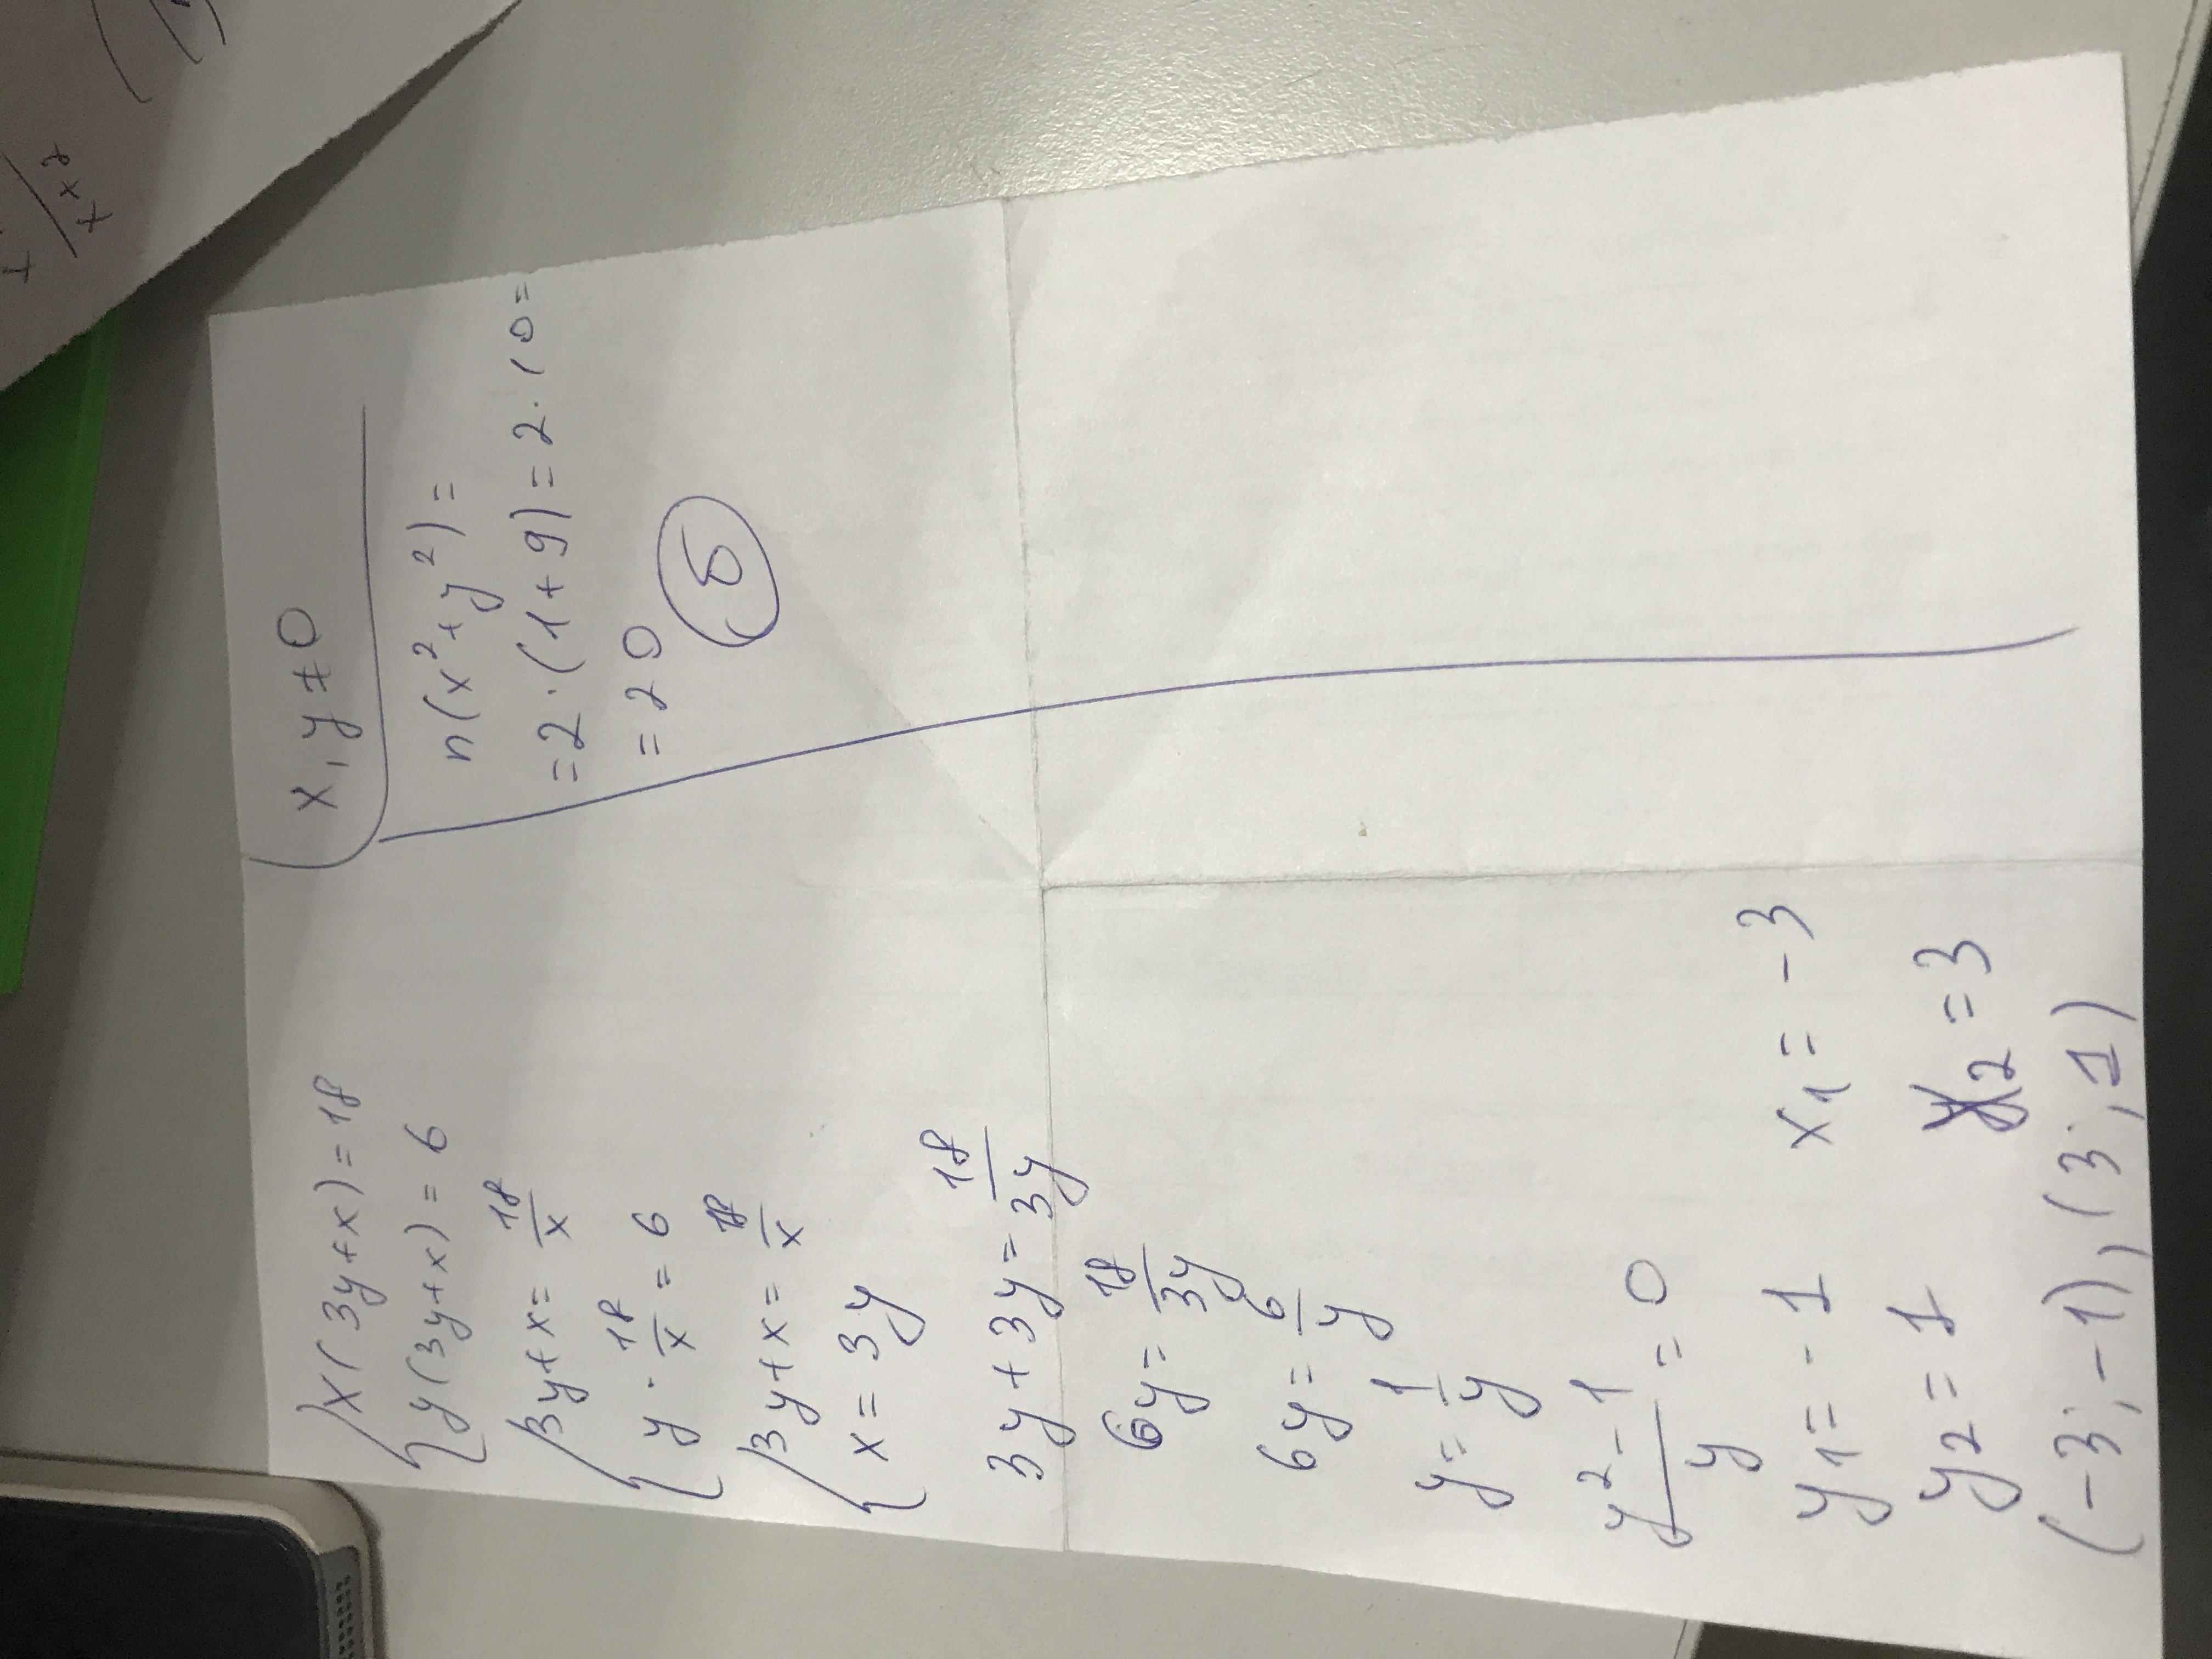 x, y ≠ 0
x(3y+x)=18
y(3y+x)=6
3y+x=18/x
y·18/x=6
3y+x=18/x
x=3y
3y+3y=18/3y
6y=18/3y
6y=6/y
y=1/y
(y²-1)/y=0
y₁=-1 x₁=-3
y₂=1 x₂=3
(-3;-1),(3;1)
n(x²+y²)=
=2·(1+9)=2·10=
=20
Б